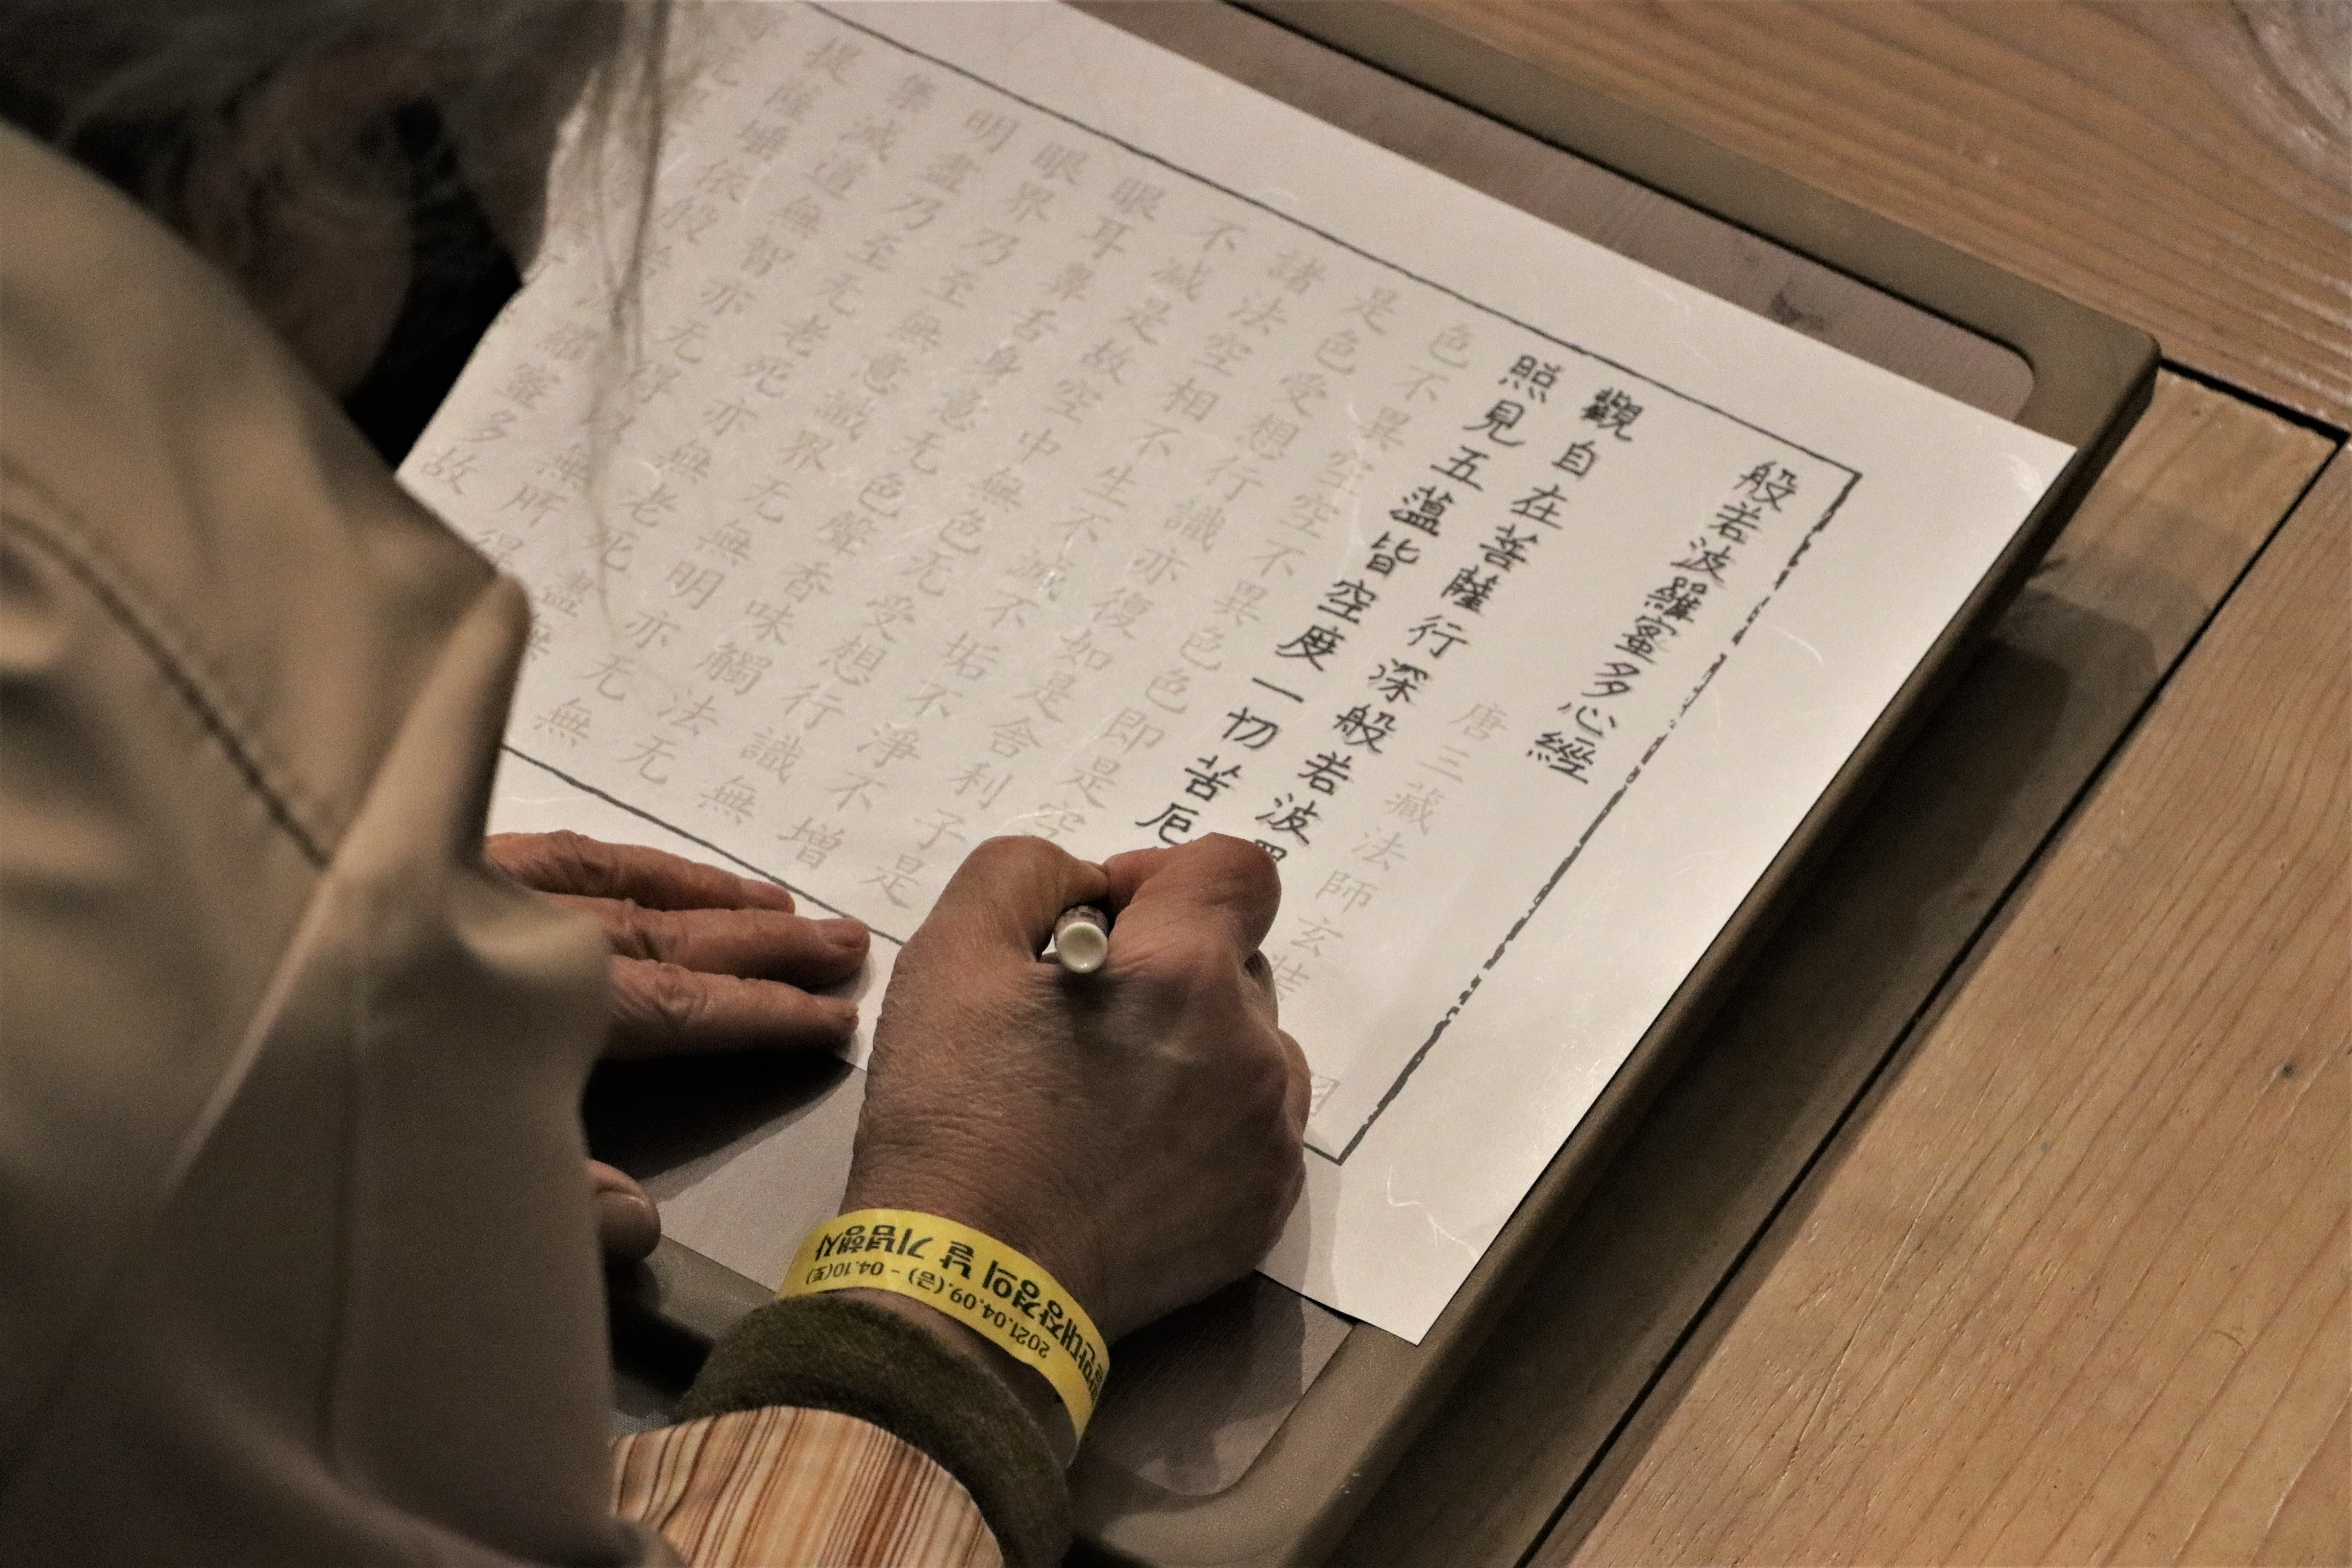 般若波羅蜜多心經
唐三藏法師玄
觀自在菩薩行深般若波
照見五蘊皆空度一切苦厄
色不異空空不異色色即是空
是色受想行識亦復如是舍利子是
諸法空相不生不滅不垢不淨不增
不減是故空中無色无受想行識無
眼耳鼻舌身意无色聲香味觸法无
眼界乃至無意識界无無明亦无無
明盡乃至无老死亦無老死盡無
集滅道無智亦无得以無所得
提薩埵依般若波羅蜜多故
대장경의 날 기념행사
2021.04.09.(금) - 04.10(토)